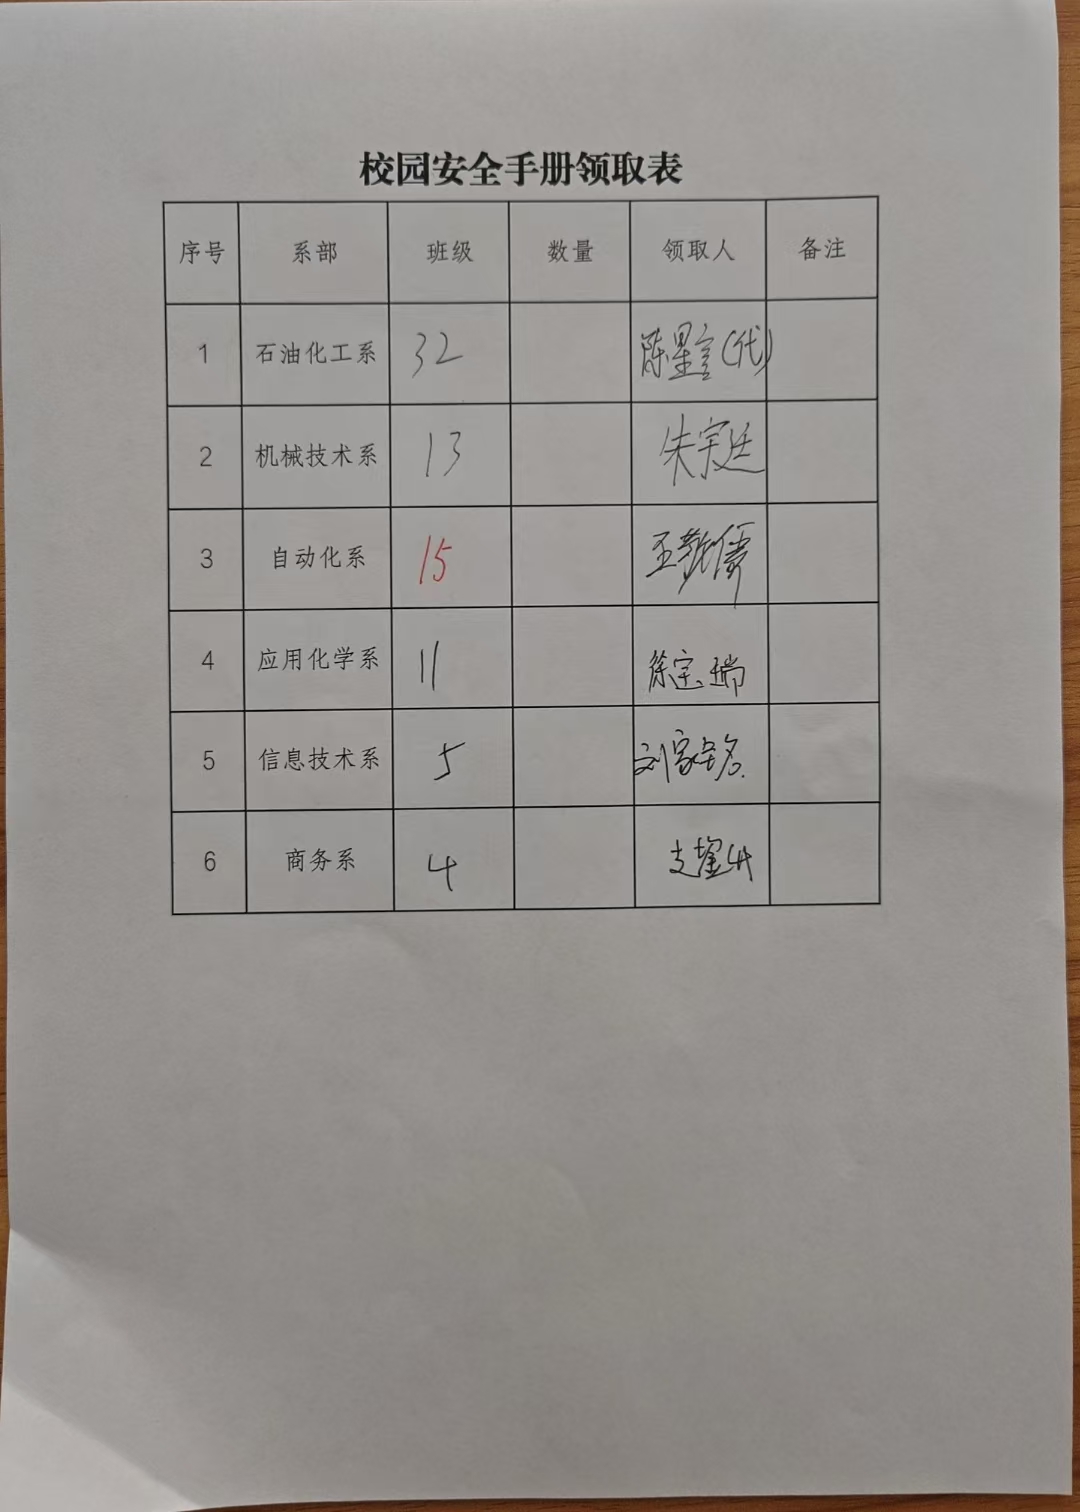 校园安全手册领取表
序号 系部 班级 数量 领取人 备注
1 石油化工系 32 陈星言(代)
2 机械技术系 13 朱宇廷
3 自动化系 15 王敬儒
4 应用化学系 11 徐宝瑞
5 信息技术系 5 刘家铭
6 商务系 4 支